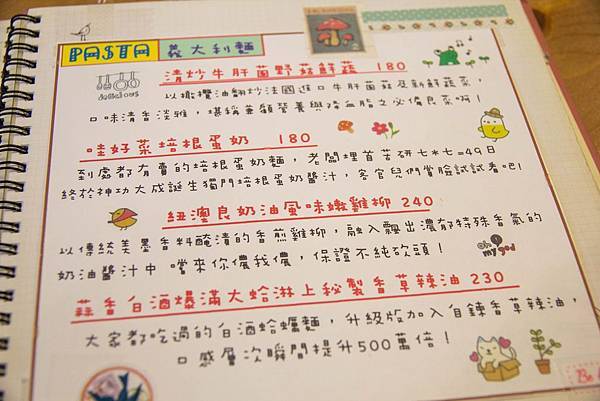 PASTA 義大利麵
清炒牛肝菌野菇鮮蔬 180
delicious
以橄欖油翻炒法國進口牛肝菌菇及新鮮蔬菜，
口味清香淡雅，堪稱兼顧營養與降血脂之必備良菜啊！
哇好菜培根蛋奶 180
到處都有賣的培根蛋奶麵，老闆埋首苦研七*七=49日
終於神功大成誕生獨門培根蛋奶醬汁，客官兒們賞臉試試看吧！
紐澳良奶油風味嫩雞柳 240
以傳統美墨香料醃漬的香煎雞柳，融入飄出濃郁特殊香氣的
奶油醬汁中 嚐來你儂我儂，保證不純砍頭！
oh my god
蒜香白酒爆滿大蛤淋上秘製香草辣油 230
大家都吃過的白酒蛤蠣麵，升級版加入自鍊香草辣油，
口感層次瞬間提升500萬倍！